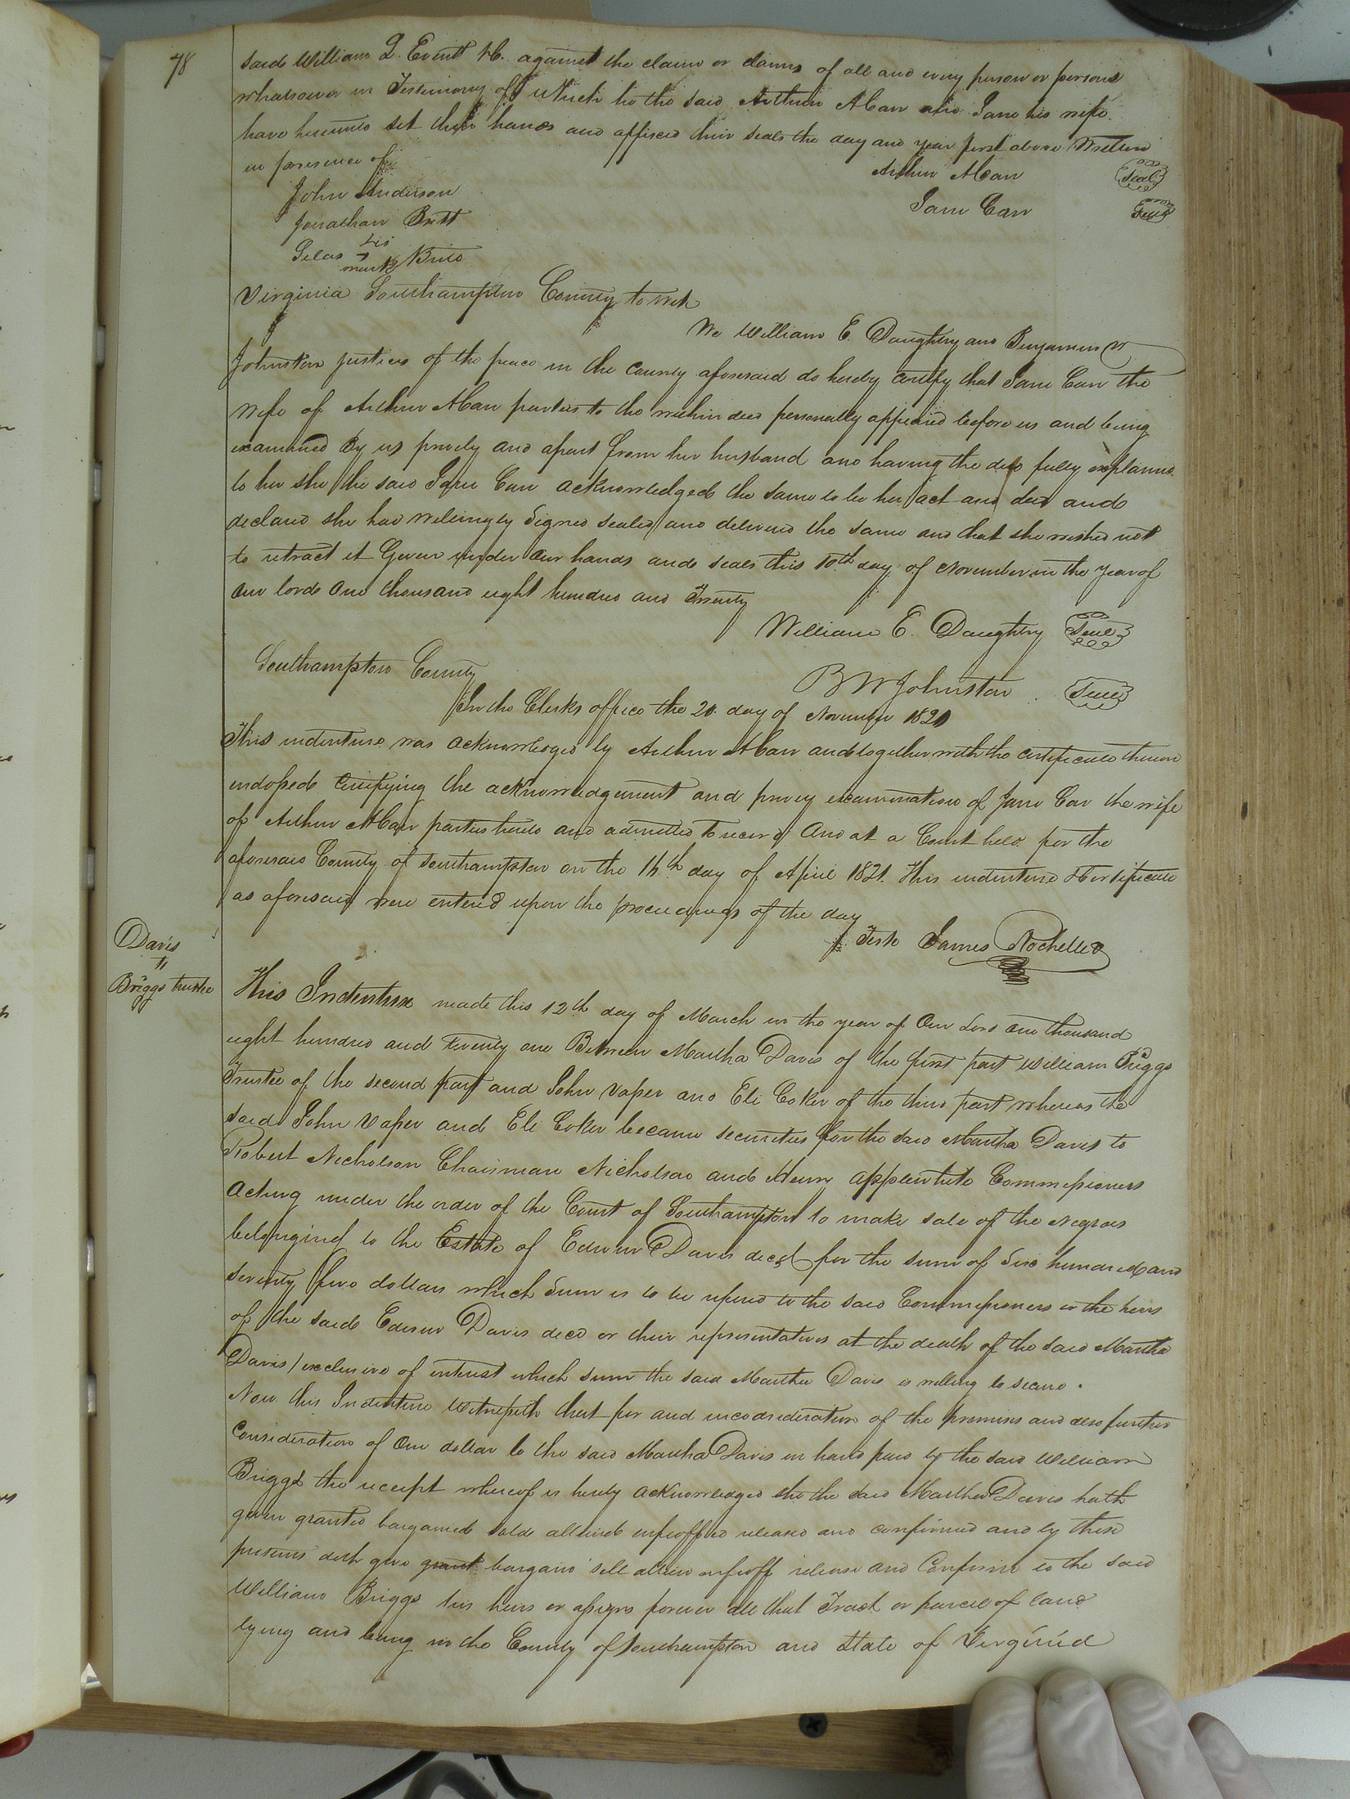 78
said William Q. Everitt &c. against the claim or claims of all and every person or persons
whatsoever in Testimony of Which he the said Arthur A Carr and Jane his wife
have hereunto set their hands and affixed their seals the day and year first above Written
in presence of
Arthur A Carr Seal
John Anderson
Jane Carr Seal
Jonathan Britt
his
Silas Britt
mark
Virginia Southampton County to wit
We William E. Daughtry and Benjamin W
Johnston justices of the peace in the County aforesaid do hereby certify that Jane Carr the
wife of Arthur A Carr parties to the within deed personally appeared before us and being
examined By us privily and apart from her husband and having the deed fully explained
to her she the said Jane Carr acknowledged the same to be her act and deed and
declared she had willingly Signed sealed and delivered the same and that she wished not
to retract it Given under Our hands and seals this 10th day of November in the year of
Our lord One thousand eight hundred and Twenty
William E. Daughtry Seal
Southampton County
B W Johnston Seal
In the Clerks office the 20 day of November 1820
This indenture was acknowledged by Arthur A Carr and together with the certificate thereon
indorsed Certifying the acknowledgement and privy examination of Jane Carr the wife
of Arthur A Carr parties hereto and admitted to record And at a Court held for the
aforesaid County of Southampton on the 16th day of April 1821. This indenture & certificate
as aforesaid were entered upon the proceedings of the day
Teste James Rochelle
Davis
to
Briggs trustee
This Indenture made this 12th day of March in the year of Our Lord one thousand
eight hundred and twenty one Between Martha Davis of the first part William Briggs
Trustee of the second part and John Vaser and Eli Coker of the third part whereas the
said John Vaser and Eli Coker became securities for the said Martha Davis to
Robert Nicholson Chairman Nicholson and Henry Applewhite Commissioners
Acting under the order of the Court of Southampton to make sale of the Negroes
belonging to the Estate of Edwin Davis decd for the sum of Six hundred and
seventy five dollars which Sum is to be the said Commissioners or the heirs
of the said Edwin Davis decd or their representatives at the death of the said Martha
Davis exclusive of interest which sum the said Martha Davis is willing to secure.
Now this Indenture Witnesseth that for and in consideration of the premises and also further
Consideration of One dollar to the said Martha Davis in hand paid by the said William
Briggs the receipt whereof is hereby acknowledged she the said Martha Davis hath
given granted bargained sold aliened enfeoffed released and confirmed and by these
presents doth give grant bargain sell alien enfeoff release and Confirm to the said
William Briggs his heirs or assigns forever all that Tract or parcel of land
lying and being in the County of Southampton and State of Virginia